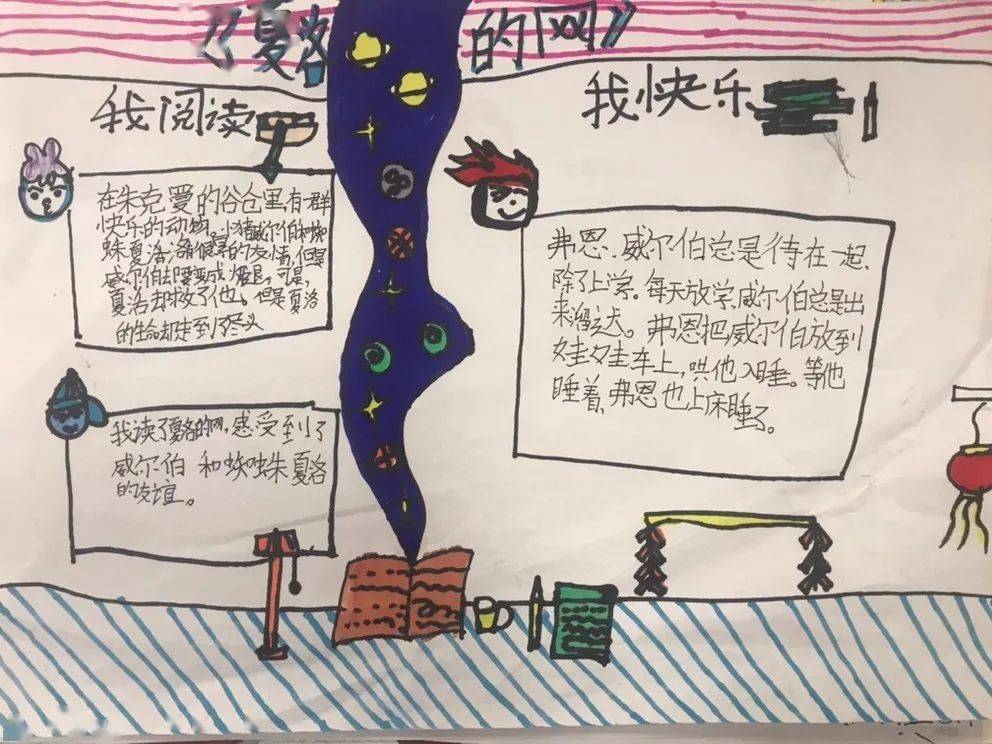 《夏洛的网》
我阅读
我快乐
在朱克曼的谷仓里,有一群
快乐的动物。小猪威尔伯和蜘
蛛夏洛有很厚的友情,但是
威尔伯却要变成火腿。可是,
夏洛却救了他。但是夏洛
的生命却走到了尽头
弗恩、威尔伯总是待在一起,
除了上学。每天放学,威尔伯总是出
来溜达。弗恩把威尔伯放到
娃娃车上,哄他入睡。等他
睡着,弗恩也上床睡了。
我读了夏洛的网,感受到了
威尔伯 和蜘蛛夏洛
的友谊。